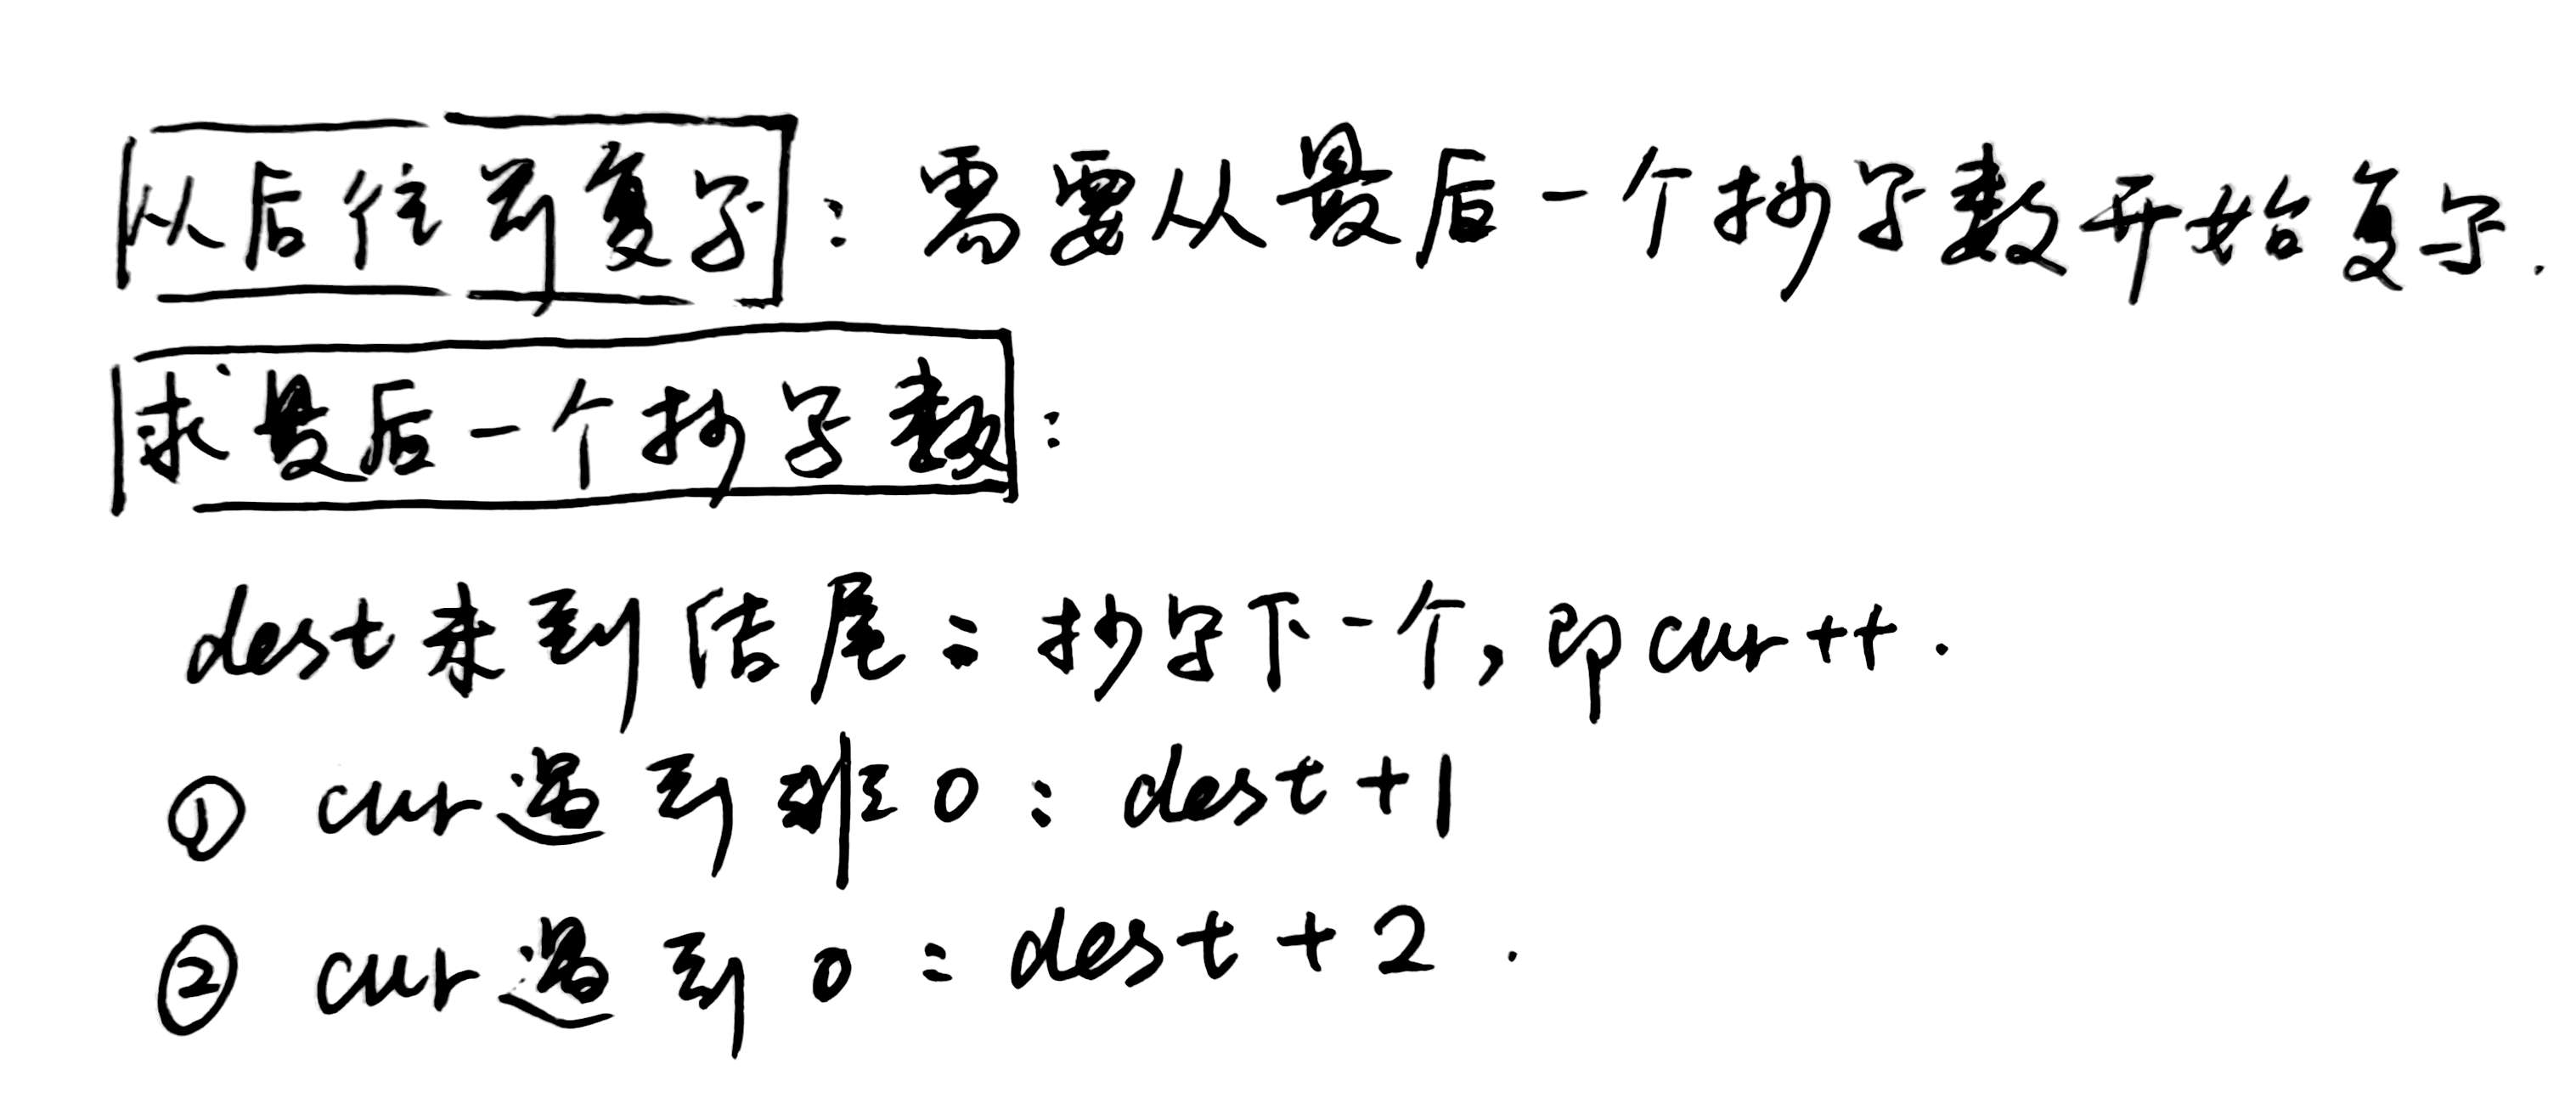 从后往前复写：需要从最后一个抄写数开始复写.
求最后一个抄写数：
dest未到结尾：抄写下一个，即cur++.
① cur遇到非0：dest+1
② cur遇到0：dest+2.